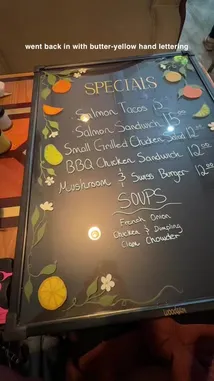 went back in with butter-yellow hand lettering
SPECIALS
Salmon Tacos 15
Salmon Sandwich 15.00
Small Grilled Chicken Salad 12.00
BBQ Chicken Sandwich 12.00
Mushroom & Swiss Burger 12.00
SOUPS
French Onion
Chicken & Dumpling
Clam Chowder